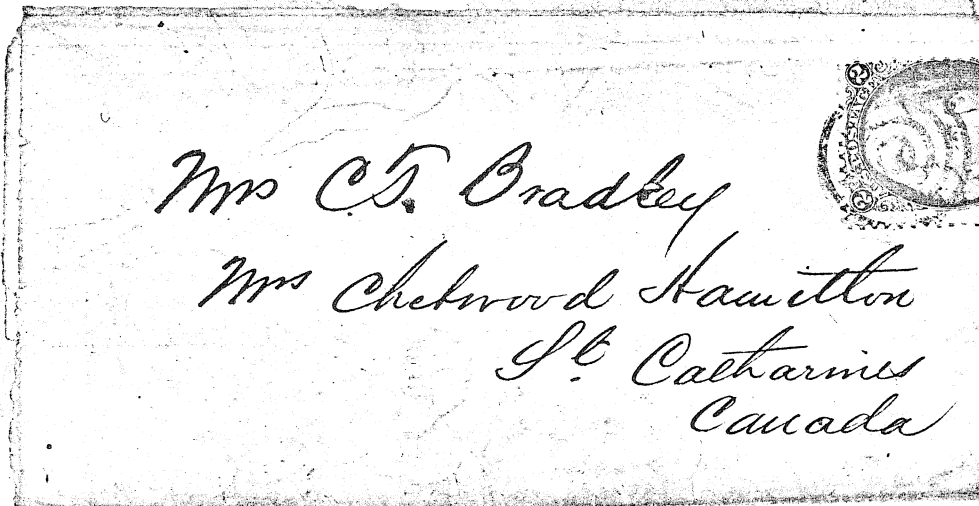 Mrs C.T. Bradley
Mrs Chetwood Hamilton
St. Catharines
Canada